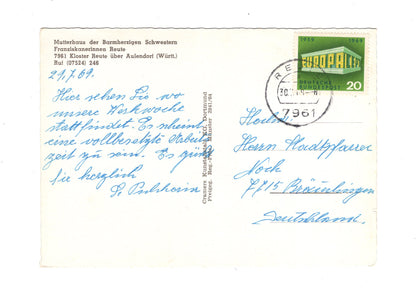 Mutterhaus der Barmherzigen Schwestern
Franziskanerinnen Reute
7961 Kloster Reute über Aulendorf (Württ.)
Ruf (07524) 246
21.7.69.
Hier sehen Sie wo
unsere Werkwoche
stattfindet. Es scheint
eine vollbesetzte Arbeits
zeit zu sein. Es grüßt
Sie herzlich
Cramers Kunstanstalt KG, Dortmund
1959 1969
EUROPA CEPT
DEUTSCHE BUNDESPOST
20
7961
Hochw.
Herrn Stadtpfarrer
Noch
7715 Bräunlingen
Deutschland.